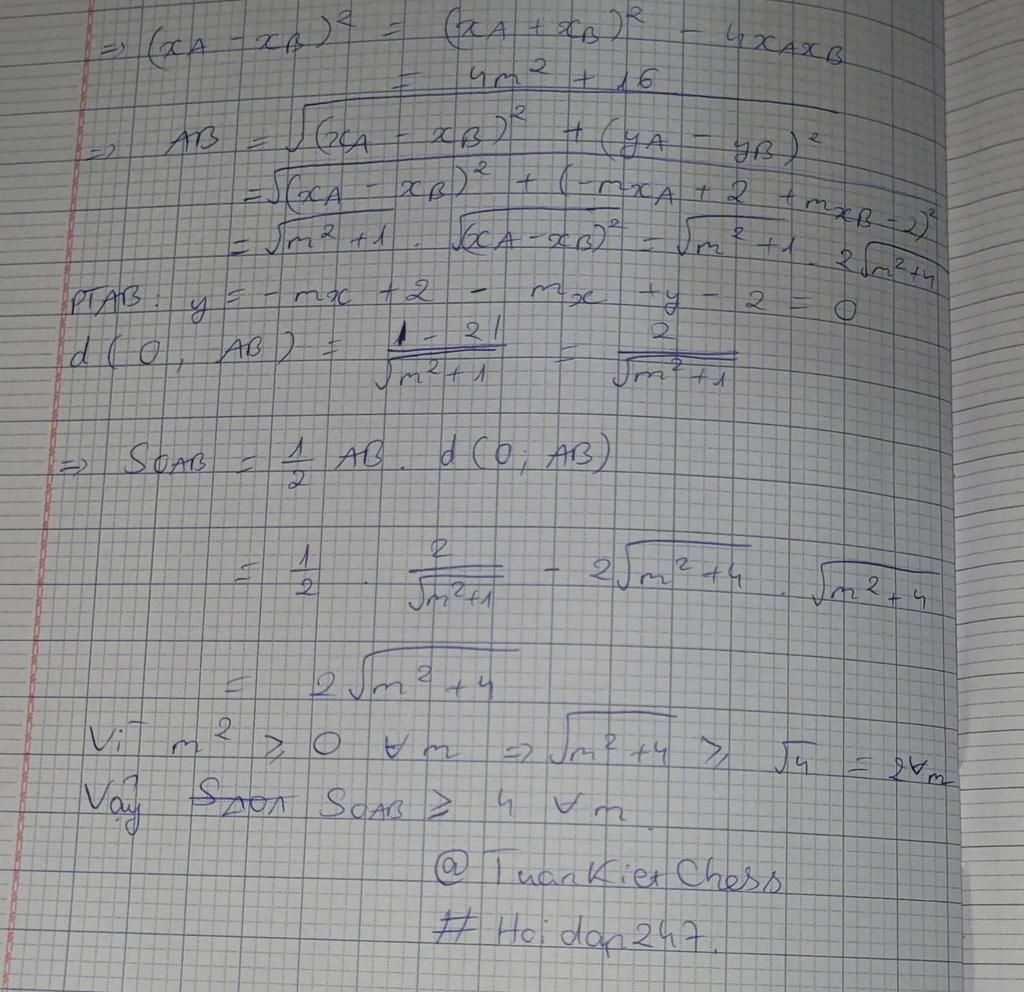 ⇒ (xA − xB)² = (xA + xB)² − 4xAxB
= 4m² + 16
⇒ AB = √((xA − xB)² + (yA − yB)²)
= √((xA − xB)² + (−mxA + 2 + mxB − 2)²)
= √(m² + 1) . √((xA − xB)²) = √(m² + 1) . 2√(m² + 4)
PTAB: y = − mx + 2 − mx + y − 2 = 0
d(O, AB) = |− 2| / √(m² + 1) = 2 / √(m² + 1)
⇒ SOAB = 1/2 AB. d(O; AB)
= 1/2 . 2/√(m²+1) − 2√(m² + 4) . √(m² + 4)
= 2√(m² + 4)
Vì m² ≥ 0 ∀m ⇒ √(m² + 4) ≥ √4 = 2∀m
Vậy SOAB ≥ 4 ∀m
@ TuanKietChess
# Hoidap247.